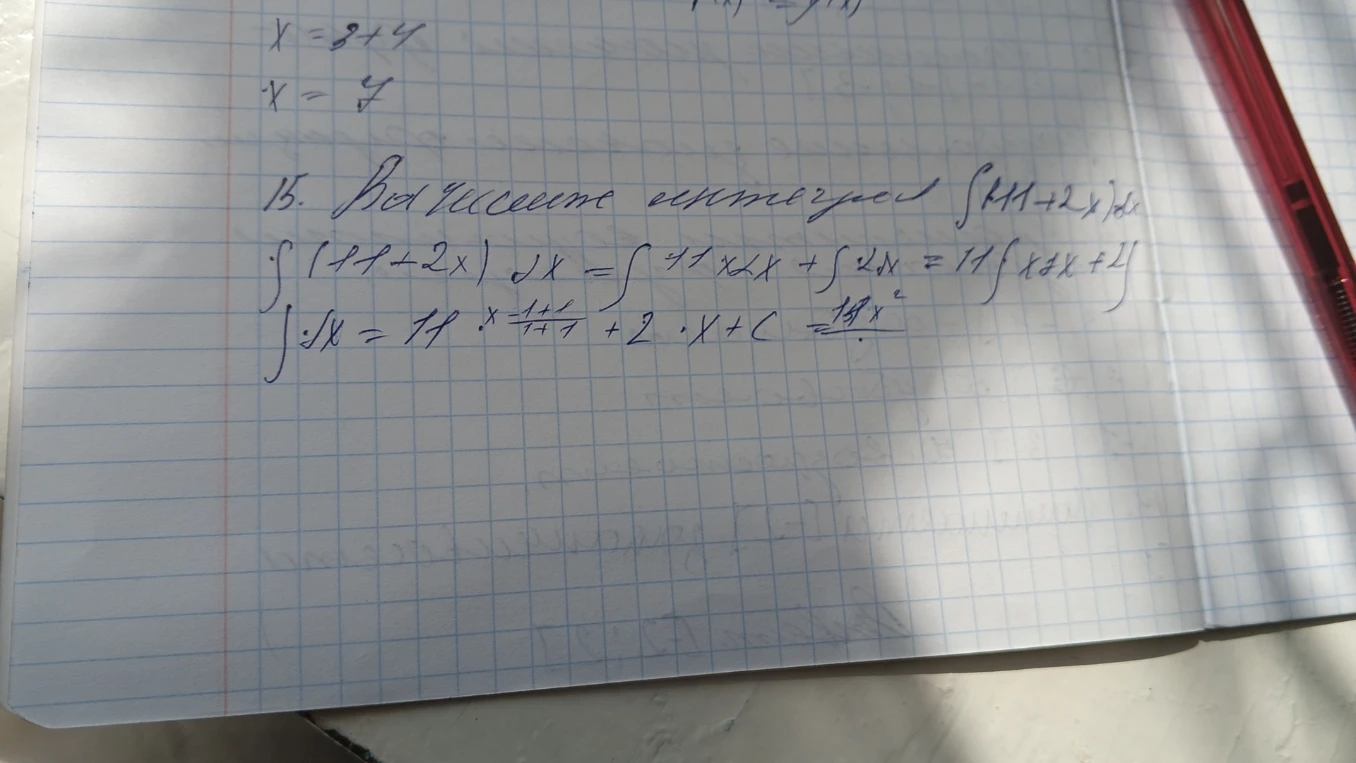 x = 3+4
x = 7
15. Вычислите интеграл ∫(11+2x)dx
∫(11+2x) dx = ∫ 11 x dx + ∫ 2dx = 11∫ x dx + 2∫
∫ dx = 11 · x 1+1/1+1 + 2 · x + C = 11x²